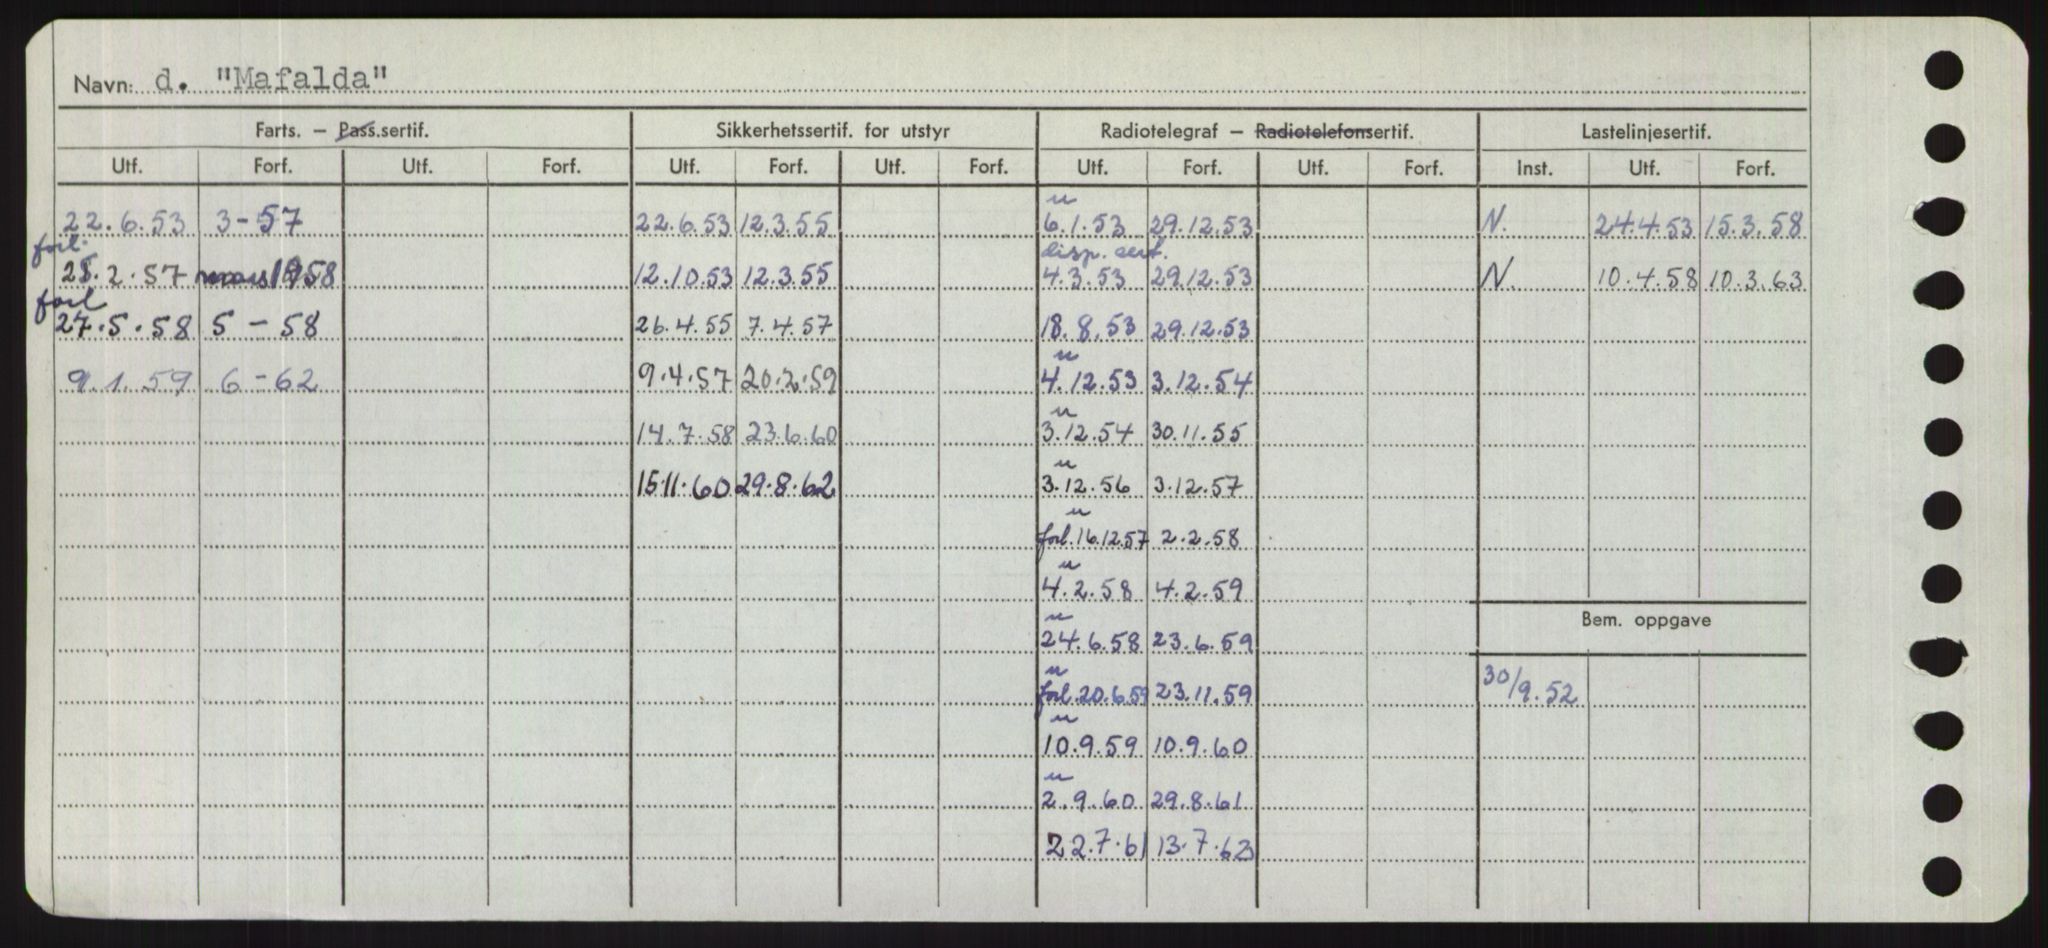 Navn: d. "Mafalda"
Farts. – Pass.sertif. Sikkerhetssertif. for utstyr Radiotelegraf – Radiotelefonsertif. Lastelinjesertif.
Utf. Forf. Utf. Forf. Utf. Forf. Utf. Forf. Utf. Forf. Utf. Forf. Inst. Utf. Forf.
u
22.6.53 3-57 22.6.53 12.3.55 6.1.53 29.12.53 N. 24.4.53 15.3.58
forl. disp. sert.
25.2.57 1958 12.10.53 12.3.55 4.3.53 29.12.53 N. 10.4.58 10.3.63
forl
27.5.58 5-58 26.4.55 7.4.57 18.8.53 29.12.53
u
9.1.59 6-62 9.4.57 20.2.59 4.12.53 3.12.54
u
14.7.58 23.6.60 3.12.54 30.11.55
u
15.11.60 29.8.62 3.12.56 3.12.57
u
forl.16.12.57 2.2.58
u
4.2.58 4.2.59
u
Bem. oppgave
24.6.58 23.6.59
u
forl.20.6.59 23.11.59 30/9.52
u
10.9.59 10.9.60
u
2.9.60 29.8.61
22.7.61 13.7.62